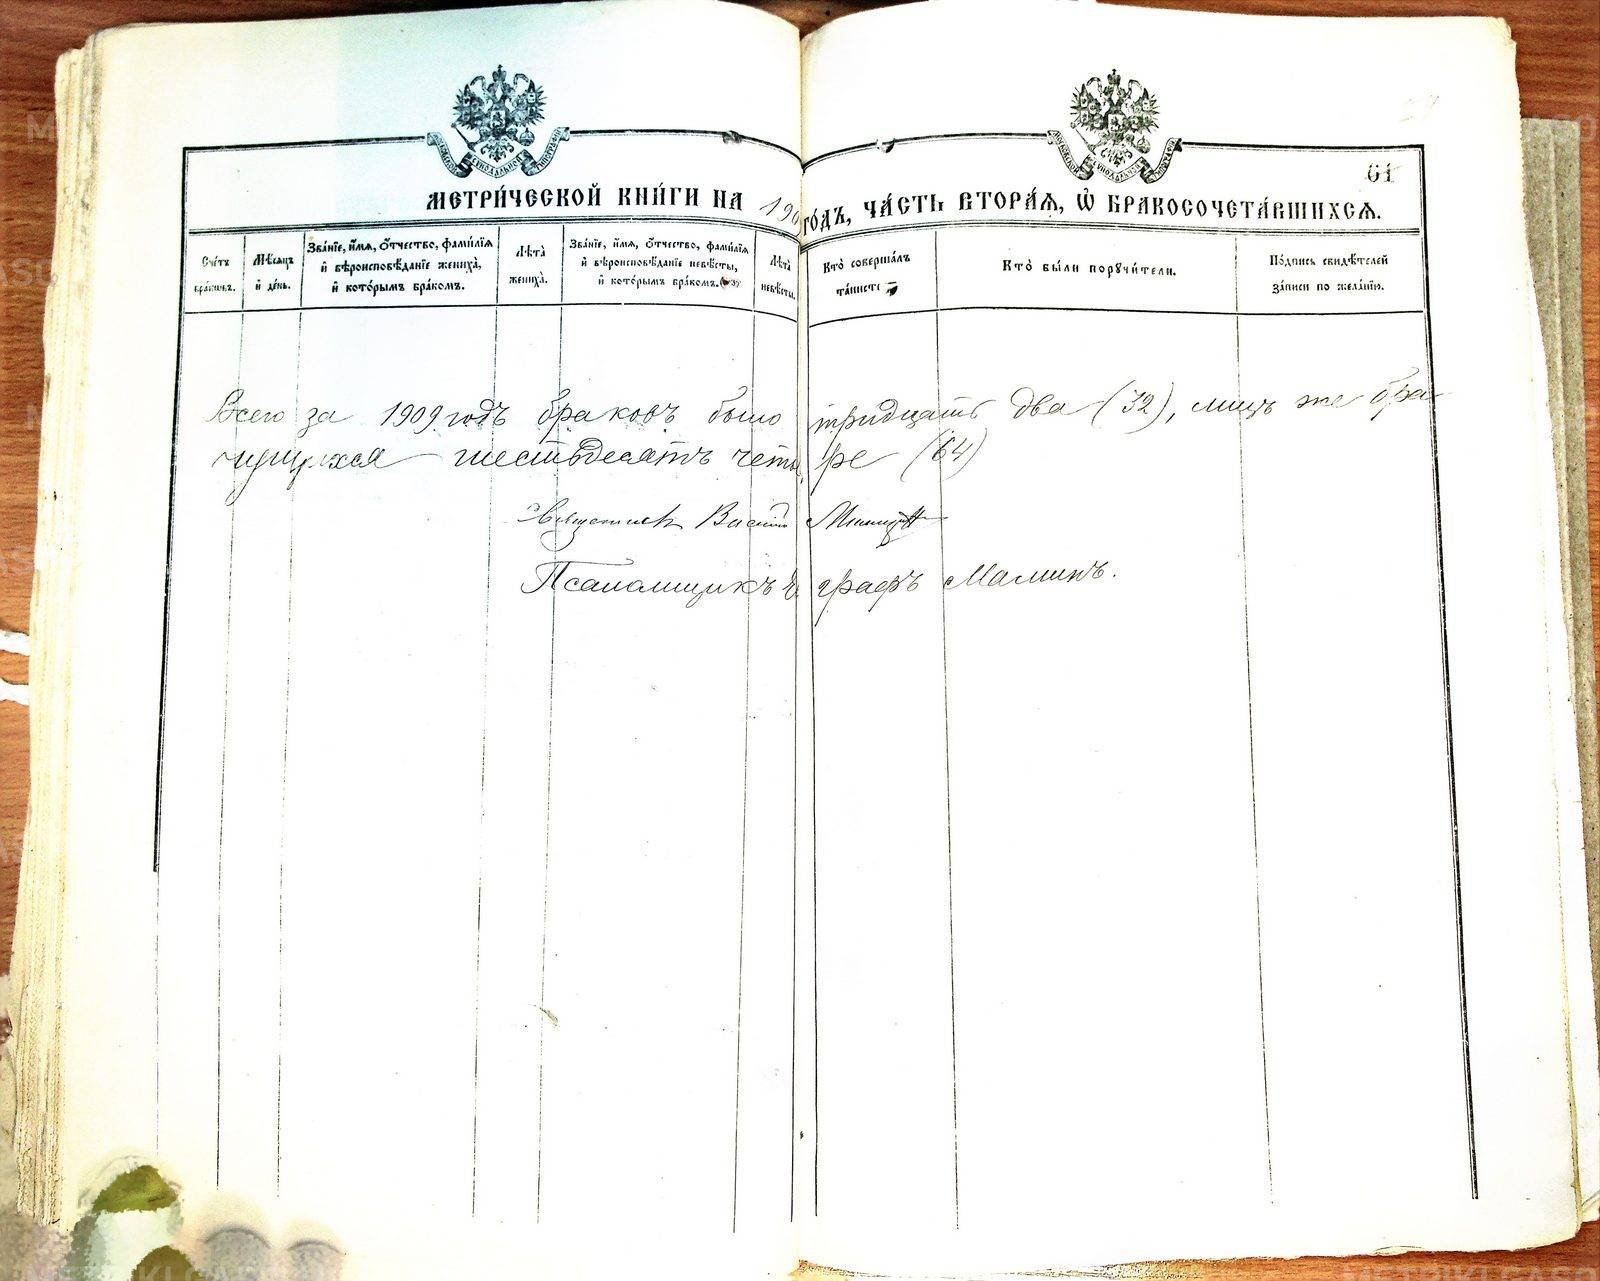 61
МЕТРИ́ЧЕСКОЙ КНИ́ГИ НА 190
ГО́ДЪ, ЧА́СТЬ ВТОРА́Я, Ѡ҆ БРАКОСОЧЕТА́ВШИХСѦ.
Сче́тъ
бра́ковъ.
Мѣ́сѧцъ
и҆ де́нь.
Зва́нїе, и҆́мѧ, ѻ҆́тчество, фами́лїѧ
и҆ вѣроисповѣ́данїе жениха̀,
и҆ кото́рымъ бра́комъ.
Лѣ́та
жениха̀.
Зва́нїе, и҆́мѧ, ѻ҆́тчество, фами́лїѧ
и҆ вѣроисповѣ́данїе невѣ́сты,
и҆ кото́рымъ бра́комъ.
Лѣ́та
невѣ́сты.
Кто̀ соверша́лъ
та́инств
Кто̀ бы́ли порꙋчи́тели.
По́дпись свидѣ́телей
за́писи по жела́нїю.
Всего за 1909 годъ браковъ было тридцать два (32), лицъ же бра
чущихся шестьдесятъ четыре (64)
Священник Василій
Псаломщикъ Е графъ Малинъ.